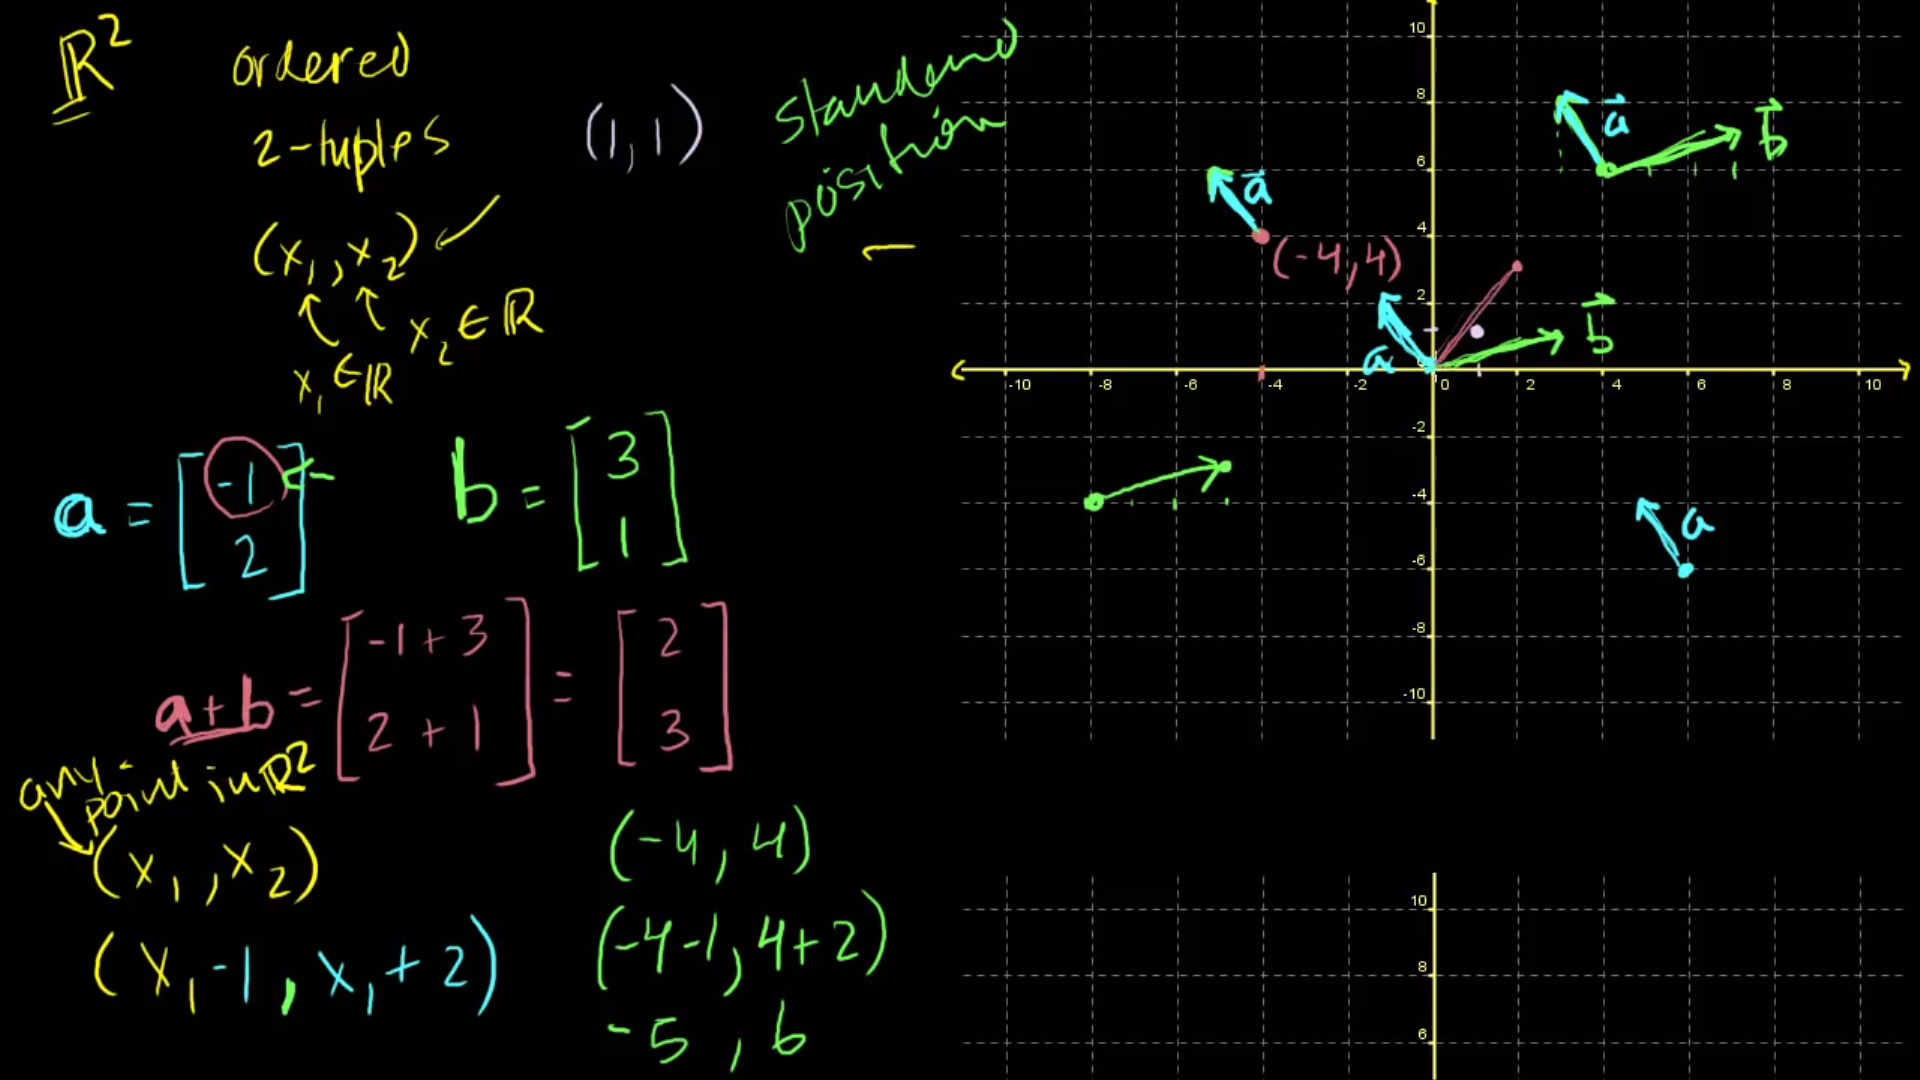 ℝ²
ordered
2-tuples
(x₁, x₂) ✓
x₁ ∈ ℝ
x₂ ∈ ℝ
(1, 1)
standard
position
a = [-1
2]
b = [3
1]
a + b = [-1 + 3
2 + 1] = [2
3]
any
point in ℝ²
(x₁, x₂)
(x₁ -1, x₁ + 2)
(-4, 4)
(-4-1, 4+2)
-5, 6
10
8
6
4
2
0
-2
-4
-6
-8
-10
-10 -8 -6 -4 -2 0 2 4 6 8 10
a⃗
b⃗
a⃗
(-4, 4)
a
b⃗
a
10
8
6